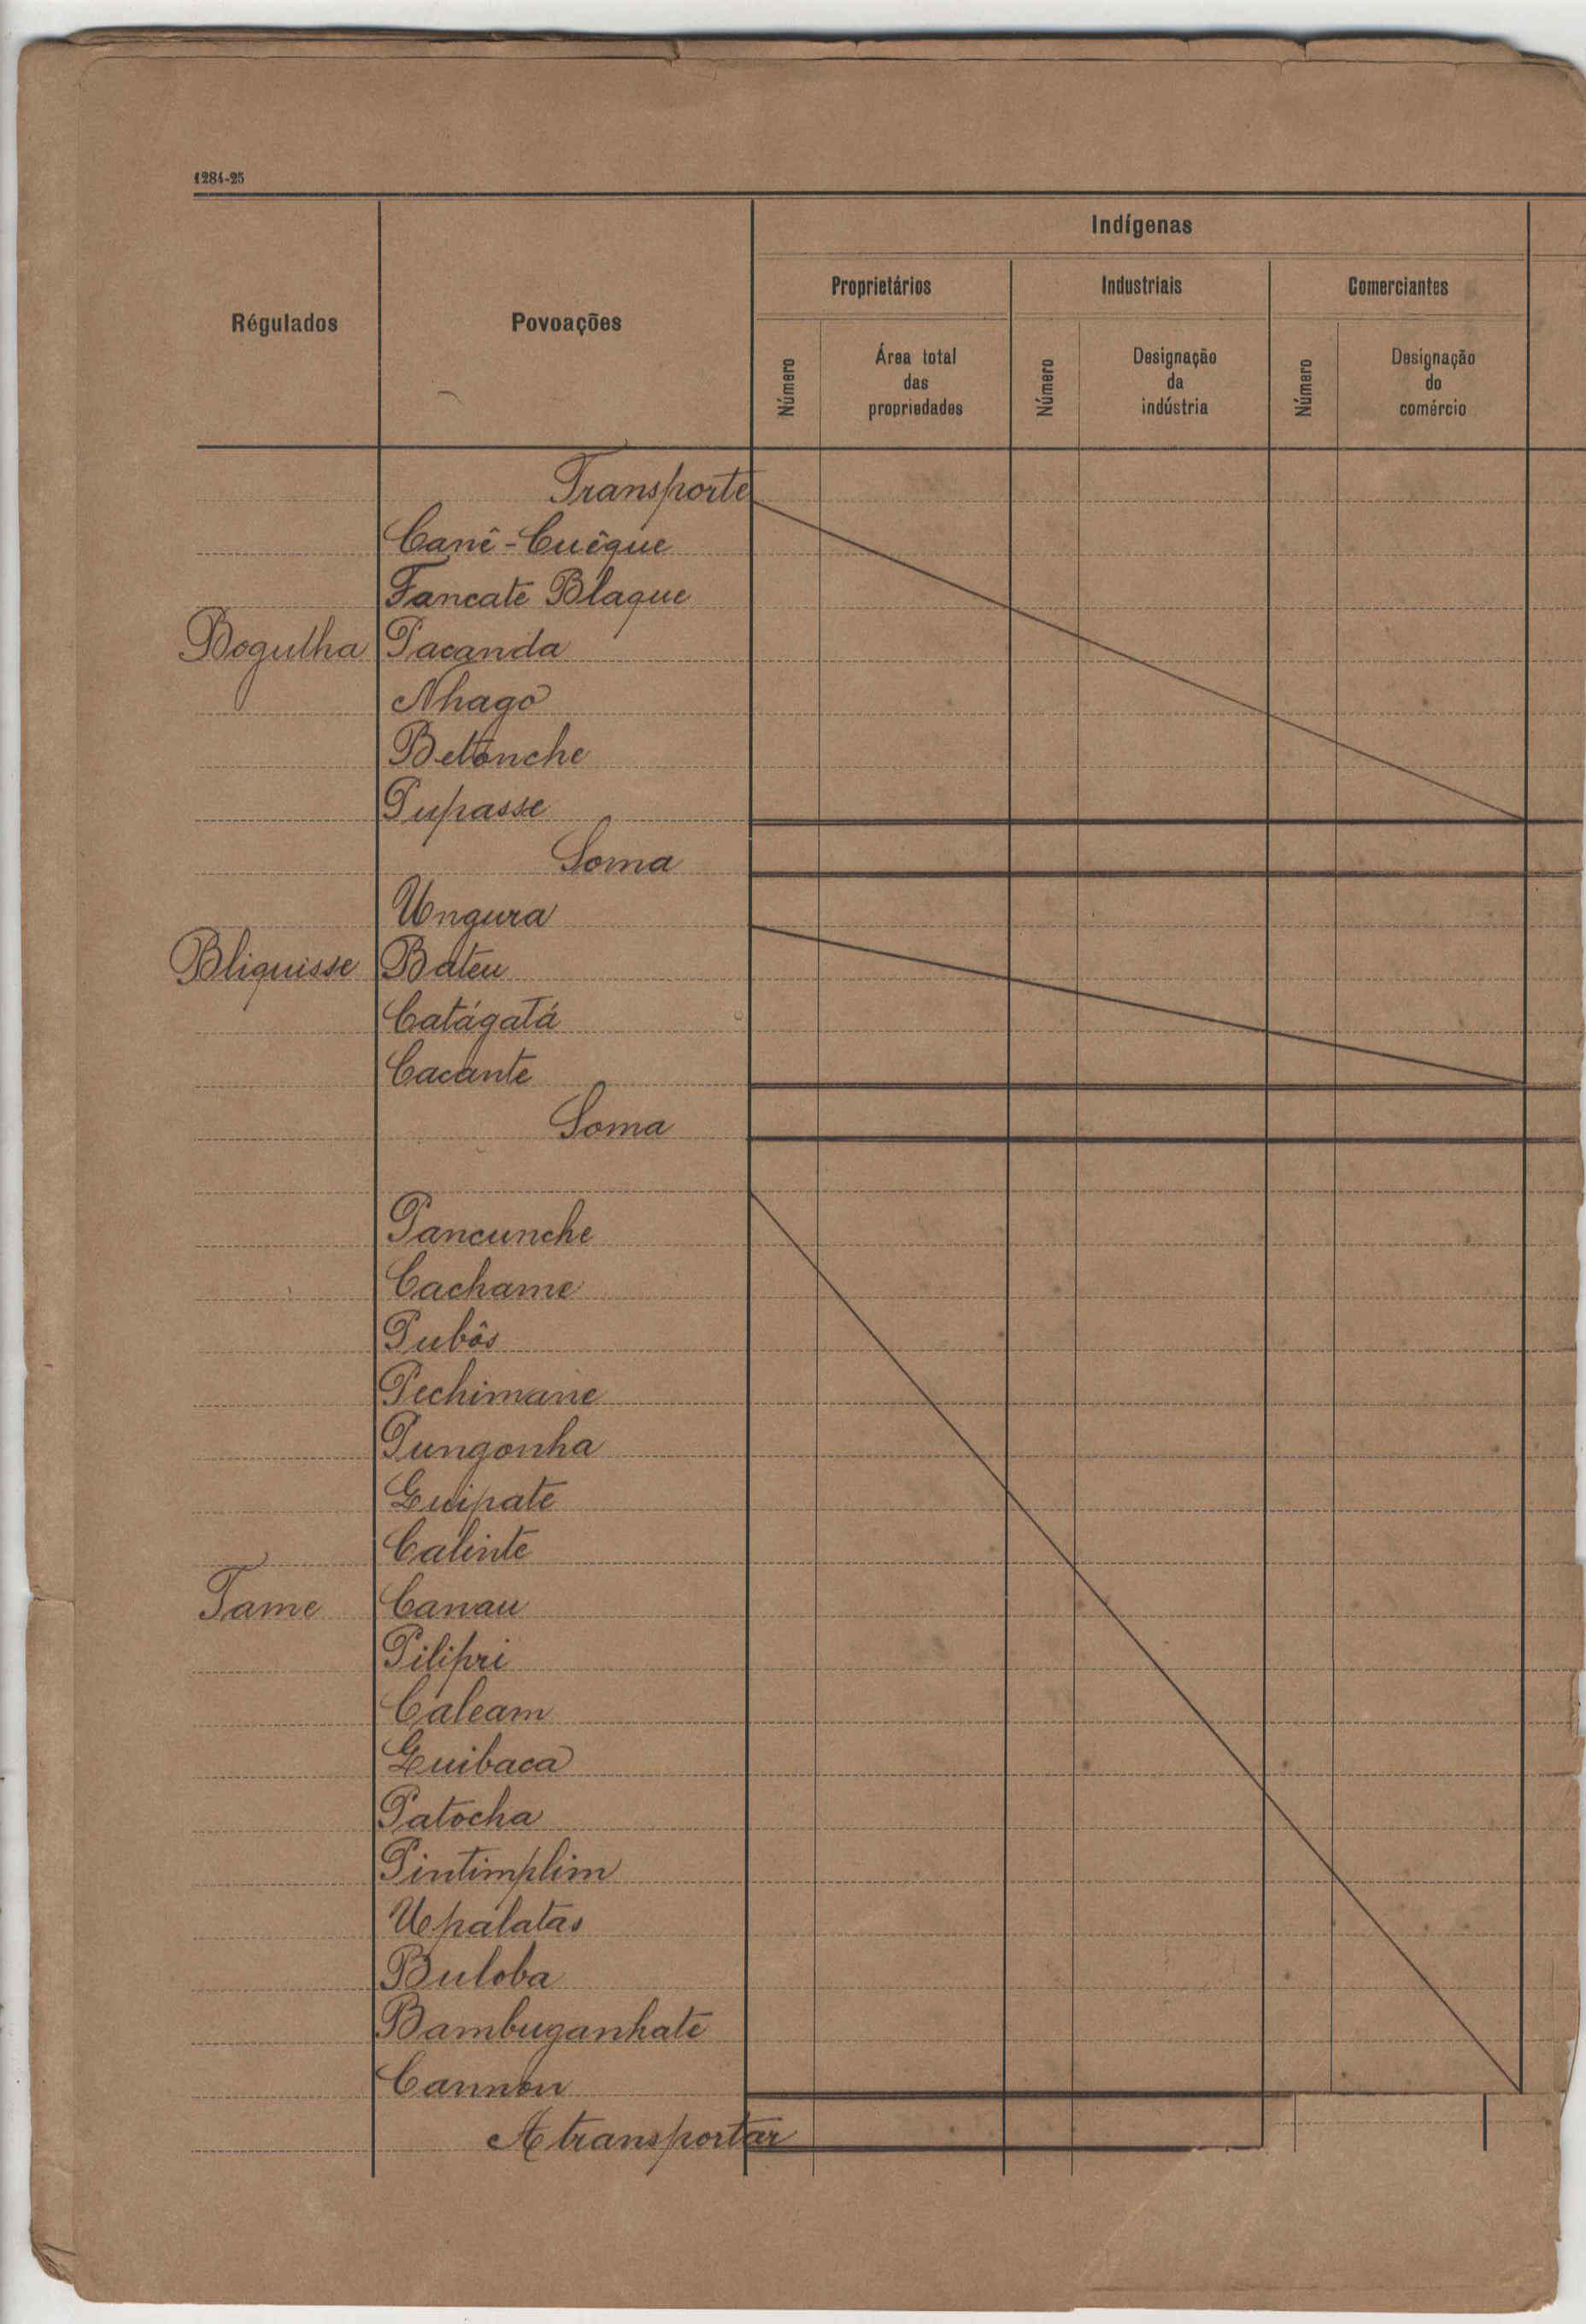 1284-25
Indígenas
Proprietários Industriais Comerciantes
Régulados Povoações
Número Área total das propriedades Número Designação da indústria Número Designação do comércio
Transporte
Canê-Cuêque
Fancate Blaque
Bogulha Pacanda
Nhago
Betonche
Pupasse
Soma
Ungura
Bliquisse Bateu
Catágatá
Cacante
Soma
Pancunche
Cachame
Pubôs
Pechimane
Pungonha
Guipate
Calinte
Tame Canau
Pilipri
Caleam
Guibaca
Patocha
Pintimplim
Upalatas
Buloba
Bambuganhate
Cannon
A transportar